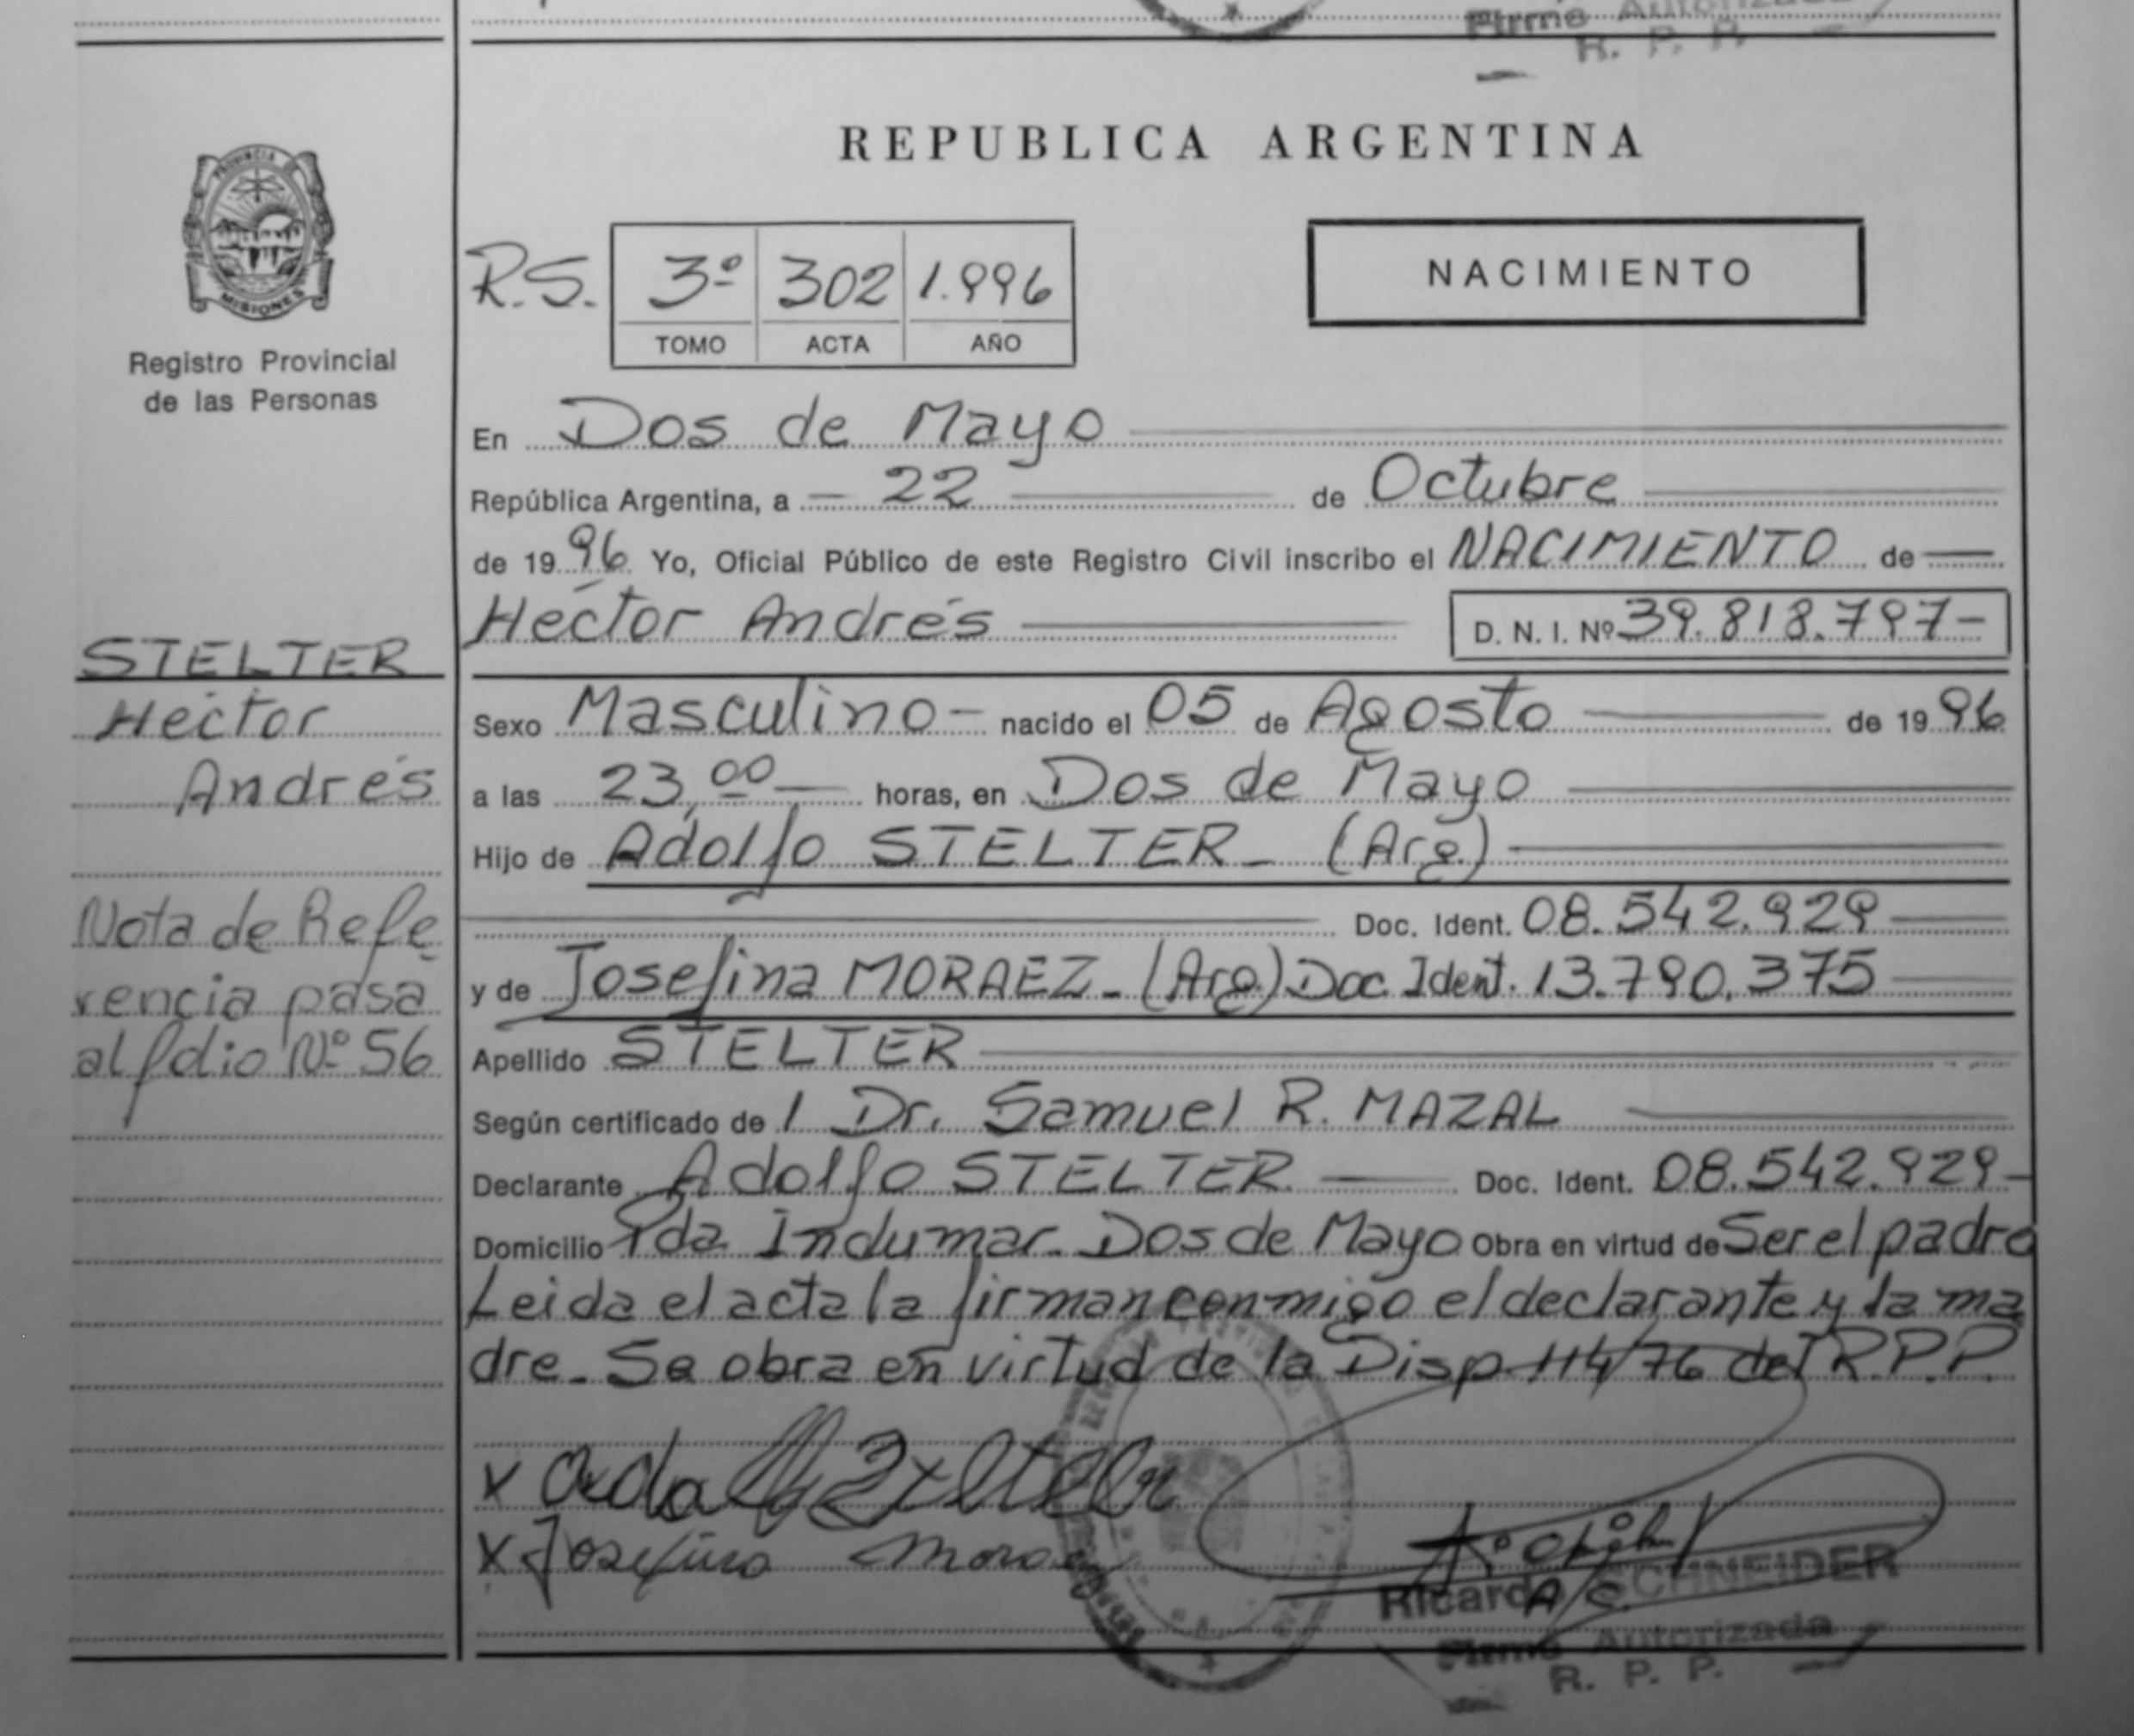 Firma Autorizada
R. P. P.
REPUBLICA ARGENTINA
PROVINCIA DE
MISIONES
Registro Provincial
de las Personas
R.S. 3º 302 1.996
TOMO ACTA AÑO
NACIMIENTO
En Dos de Mayo
República Argentina, a 22 de Octubre
de 1996 Yo, Oficial Público de este Registro Civil inscribo el NACIMIENTO de
Héctor Andrés D. N. I. Nº 39.818.797-
STELTER
Héctor
Andrés
Sexo Masculino- nacido el 05 de Agosto de 1996
a las 23,00 horas, en Dos de Mayo
Hijo de Adolfo STELTER- (Arg)
Doc. Ident. 08.542.929
y de Josefina MORAEZ-(Arg) Doc Ident. 13.790.375
Nota de Refe
rencia pasa
al folio Nº 56
Apellido STELTER
Según certificado de l Dr. Samuel R. MAZAL
Declarante Adolfo STELTER Doc. Ident. 08.542.929-
Domicilio Pda Indumar Dos de Mayo Obra en virtud de Ser el padre
Leida el acta la firman conmigo el declarante y la ma
dre. Se obra en virtud de la Disp. 114/76 del R.P.P.
x
x Josefina
Ricardo SCHNEIDER
A/C
Firma Autorizada
R. P. P.